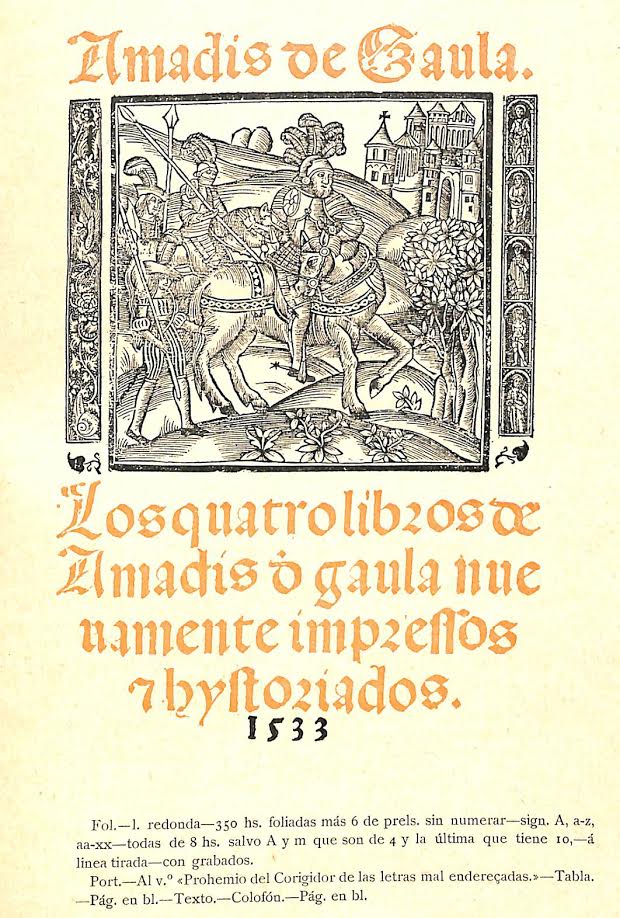 Amadis de Gaula.
Los quatro libros de
Amadis đ gaula nue
uamente impressos
⁊ hystoriados.
1533
Fol.—l. redonda—350 hs. foliadas más 6 de prels. sin numerar—sign. A, a-z,
aa-xx—todas de 8 hs. salvo A y m que son de 4 y la última que tiene 10,—á
linea tirada—con grabados.
Port.—Al v.º «Prohemio del Corigidor de las letras mal endereçadas.»—Tabla.
—Pág. en bl.—Texto.—Colofón.—Pág. en bl.